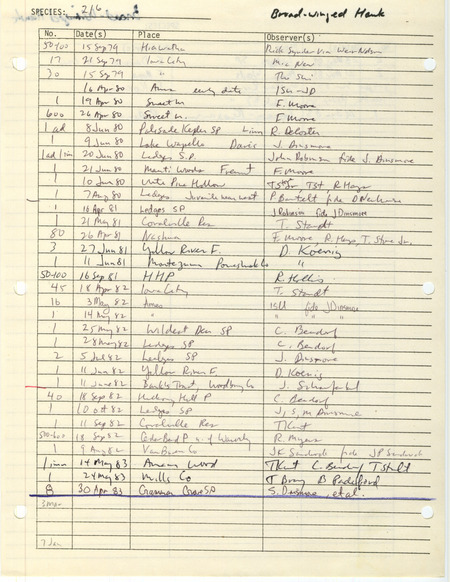 SPECIES: 216 Broad-winged Hawk
No. Date(s) Place Observer(s)
50-100 15 Sep 79 Hiawatha Rich Snyder via Weir Nelson
17 21 Sep 79 Iowa City
30 15 Sep 79 "
16 Apr 80 Ames early date ISU-JD
1 19 Apr 80 Sweet M. F. Moore
600 26 Apr 80 Sweet M. F. Moore
1 ad 8 Jun 80 Palisades Kepler SP Linn R. DeCoster
1 9 Jun 80 Lake Wapello Davis J. Dinsmore
1 ad/im 20 Jun 80 Ledges S.P. John Robinson fide J. Dinsmore
1 21 Jun 80 Fremt F. Moore
1 10 Jun 80 White Pine Hollow TSt Jr, TSt, R Myers
1 7 Aug 80 Ledges P Bartelt fide D Newhouse
1 16 Apr 81 Ledges SP J Robinson fide J Dinsmore
1 21 May 81 Coralville Res T. Staudt
80 26 Apr 81 Nashua F. Moore R. Myers, T. Stone Jr.
3 27 Jun 81 Yellow River F. D. Koenig
1 11 Jun 81 Montezuma Poweshiek Co "
50-100 16 Sep 81 HHP R. Hollis
45 18 Apr 82 Iowa City T. Staudt
16 3 May 82 Ames ISU fide J Dinsmore
1 14 May 82 " " " "
1 25 May 82 Wildcat Den SP C. Bendorf
28 May 82 Ledges SP C. Bendorf
2 5 Jul 82 Ledges SP J. Dinsmore
1 11 Jun 82 Yellow River F. D. Koenig
1 11 June 82 Woodbury Co J. Schaufenbuel
40 18 Sep 82 Hickory Hill P C. Bendorf
1 10 Oct 82 Ledges SP J, S, M Dinsmore
11 Sep 82 Coralville Res T Kent
500-600 18 Sep 82 Cedar Bend P n of Waverly R. Myers
1 9 Aug 82 Van Buren Co JE Sandrock fide JP Sandrock
1 imm 14 May 83 Amana Wood T Kent C. Bendorf T Staudt
1 24 May 83 Mills Co T Bray B Padelford
8 30 Apr 83 Cannon Grove SP S. Dinsmore, et al.
3 Mar
7 Jan